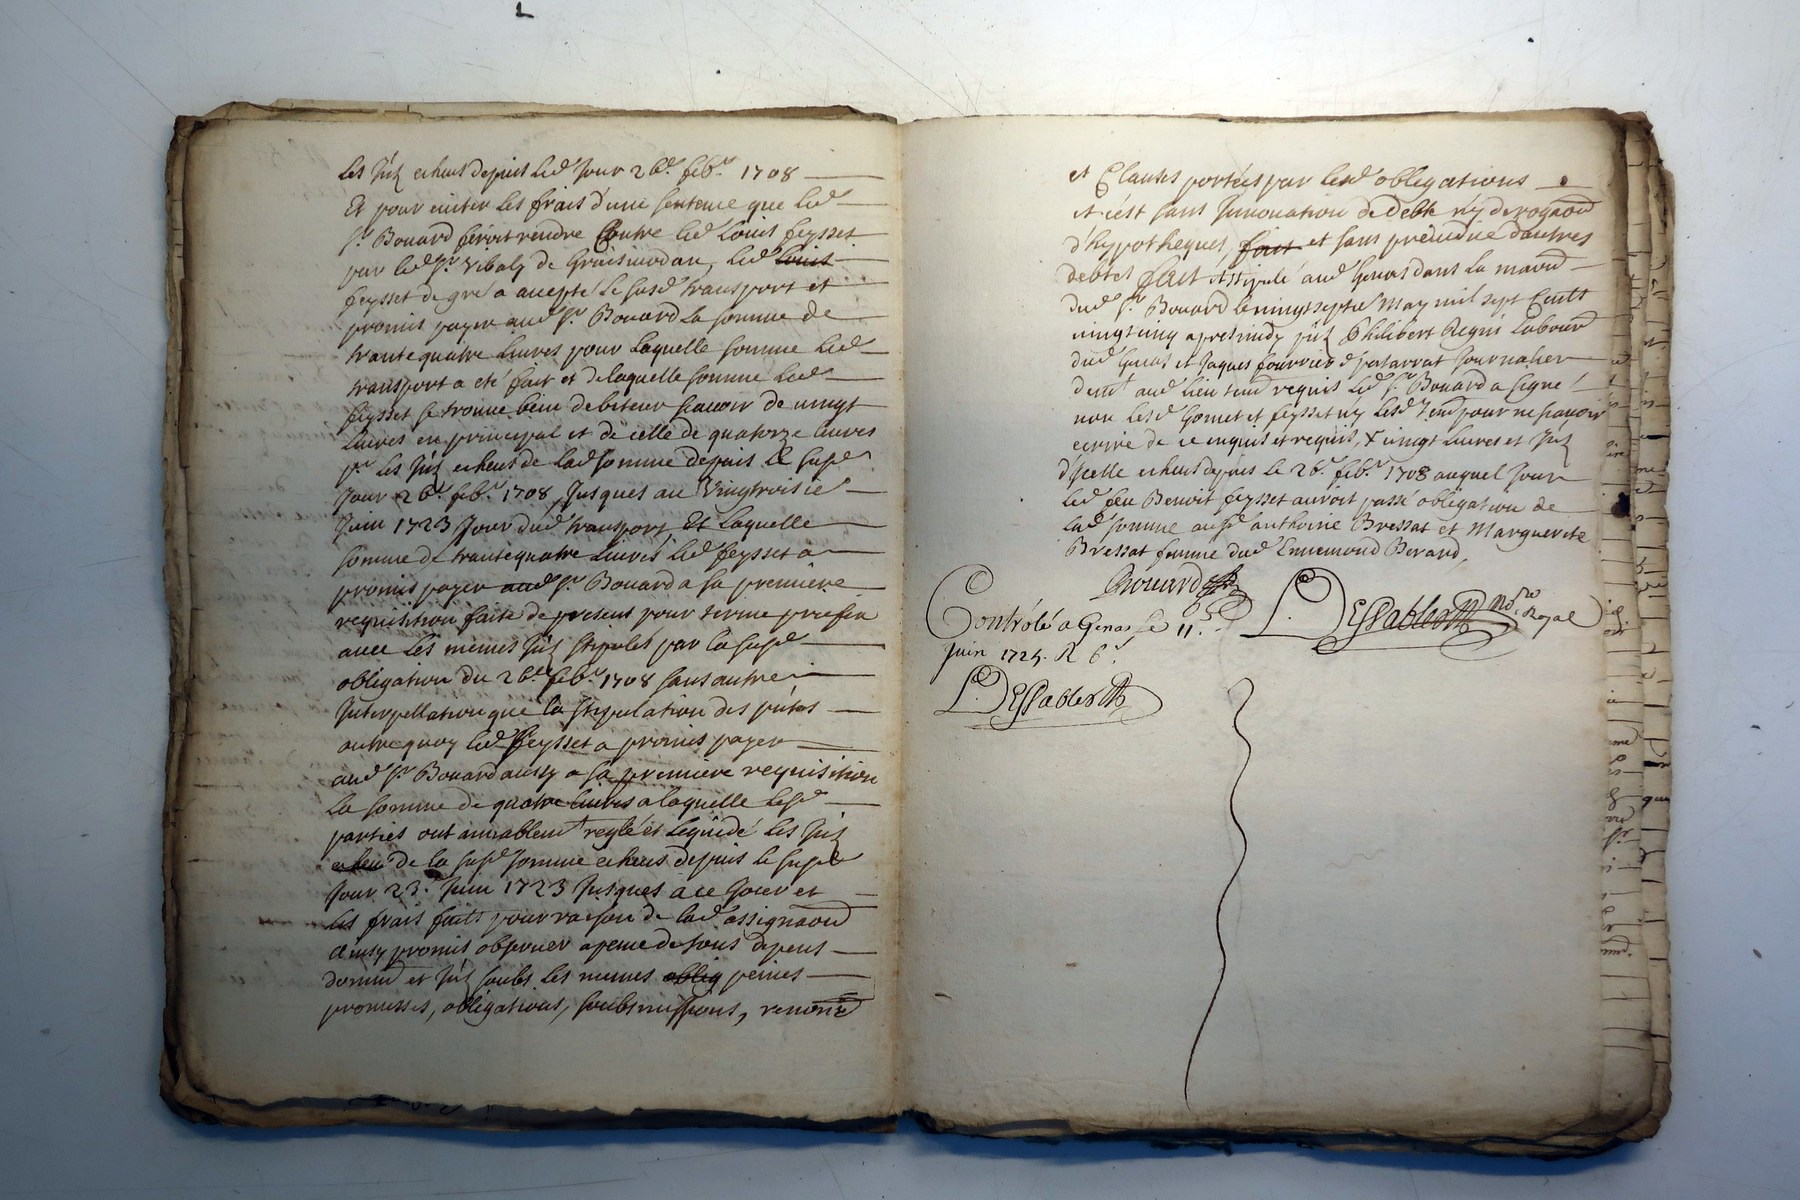 les jntz echeus depuis led jour 26e febr 1708
Et pour eviter les frais d'une sentence que led
sr Bouard feroit rendre Contre led Louis feysset
par led sr vibaly de Graisivodan, led Louis
feysset de gré a accepté le susd transport et
promis payer aud sr Bouard la somme de
trante quatre livres pour laquelle somme led
transport a eté fait et de laquelle somme led
feysset se trouve bien debiteur scavoir de vingt
livres en principal et de celle de quatorze livres
pr les jntz echeus de lad somme depuis le susd
jour 26e febr 1708, jusques au vingtroisie
juin 1723 jour dud transport, Et laquelle
somme de trante quatre livres led feysset a
promis payer aud sr Bouard a sa premiere
requisition faite de present pour terme prefix
avec les memes jntz stipules par la susd
obligation du 26e febr 1708 sans autre
jnterpellation que la stipulation des pntes
outre quoy led feysset a promis payer
aud sr Bouard aussy a sa premiere requisition
la somme de quatre livres a laquelle lesd
parties ont amiablemt reglé et liquidé les jntz
echeu de la susd somme echeus depuis le susd
jour 23e juin 1723 jusques a ce jour et
les frais faits pour raison de lad assignaon
Ainsy promis observer a peine de tous depens
domm et jntz soubs les memes oblig peines
promesses, obligations, soubmissions, renonc
et Clauses portées par lesd obligations
et c'est sans jnnovation de debte ny derogaon
d'hypotheques, fait et sans prejudice d'autres
debtes fait et stipulé aud Genas dans la maison
dud sr Bouard le vingt septe May mil sept Cents
vingt cinq apres midy pntz Philibert Regni Labour
dud Genas et Jaques fourrier journalier
demt aud lieu tem requis led sr Bouard a signé
non lesd Gomet et feysset ny lesd tem pour ne scavoir
ecrire de ce enquis et requis, + vingt livres et jntz
d'jcelle echeus depuis le 26e febr 1708 auquel jour
led feu Benoit feysset auroit passé obligation de
lad somme aux Anthoine Bressat et Marguerite
Bressat femme dud Ennemond Berard,
Bouard
L. DEsablers Nore Royal
Contrôlé a Genas le 11e
juin 1725. R 6s
L. DEsablers